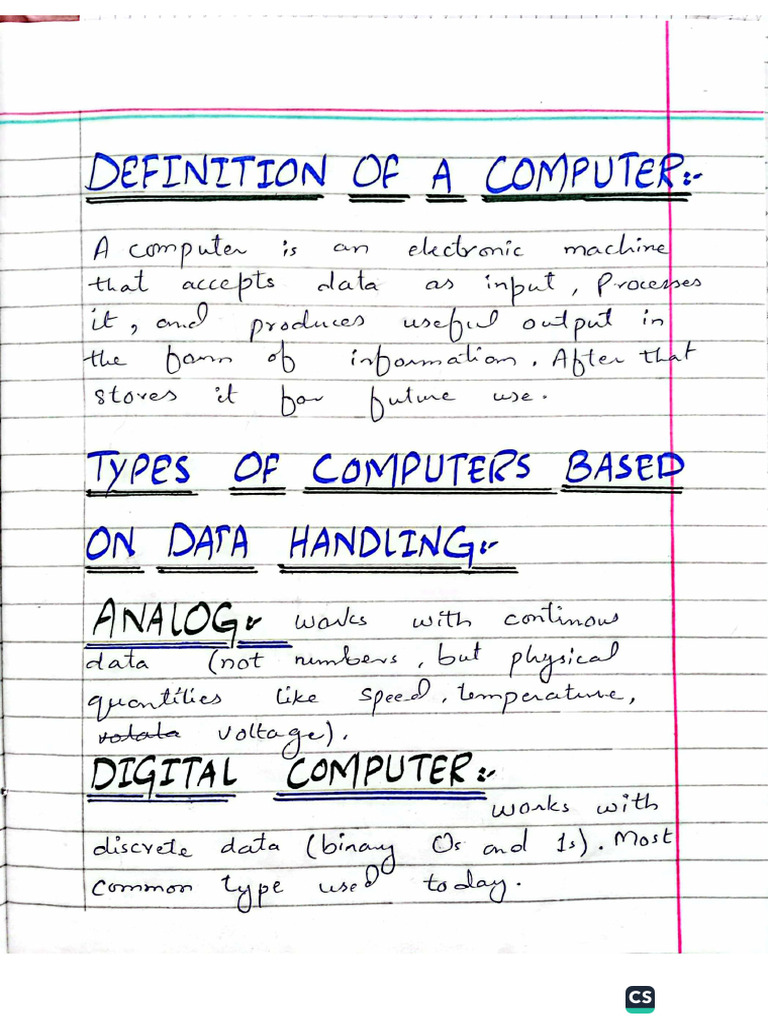 DEFINITION OF A COMPUTER:-
A computer is an electronic machine
that accepts data as input, Processes
it, and produces useful output in
the form of information. After that
stores it for future use.
TYPES OF COMPUTERS BASED
ON DATA HANDLING:-
ANALOG:- works with continous
data (not numbers, but physical
quantities like speed, temperature,
voltage).
DIGITAL COMPUTER:-
works with
discrete data (binary 0s and 1s). Most
common type used today.
CS